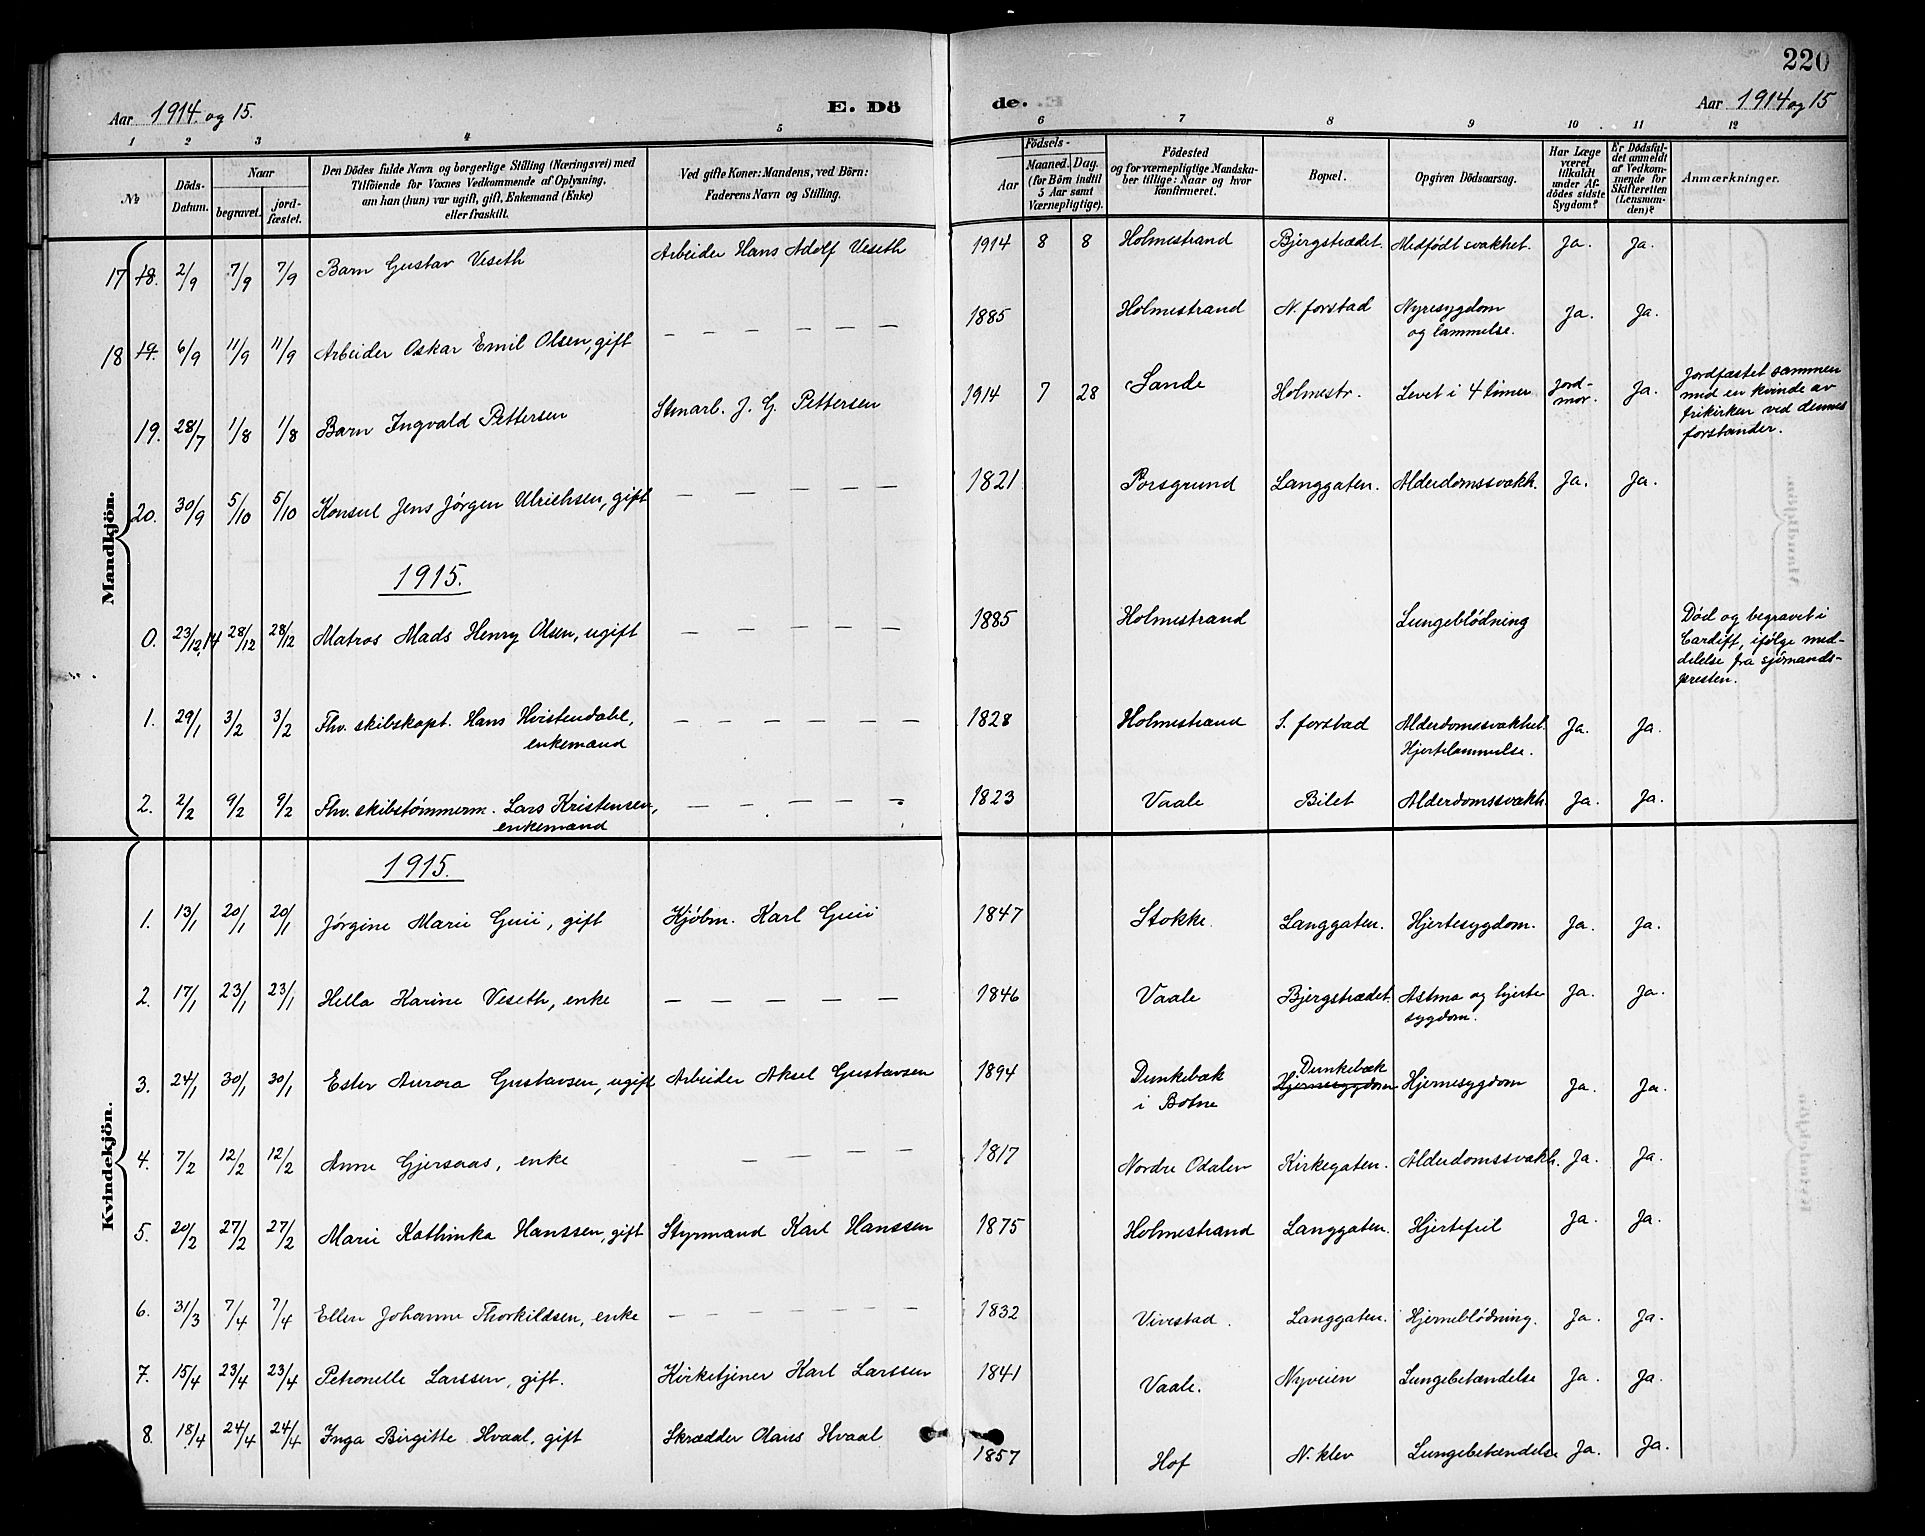 220
Aar 1914 og 15.
E. Dö
de.
Aar 1914 og 15
1 2 3 4 5 6 7 8 9 10 11 12
№
Döds-Datum.
Naar
begravet.
jord-fæstet.
Den Dödes fulde Navn og borgerlige Stilling (Næringsvei) med
Tilföiende for Voxnes Vedkommende af Oplysning,
om han (hun) var ugift, gift, Enkemand (Enke)
eller fraskilt.
Ved gifte Koner: Mandens, ved Börn:
Faderens Navn og Stilling.
Födsels-
Aar
Maaned. Dag.
(for Börn indtil
5 Aar samt
Værnepligtige).
Födested
og for værnepligtige Mandska-
ber tillige: Naar og hvor
konfirmeret.
Bopæl.
Opgiven Dödsaarsag.
Har Læge
været
tilkaldt
under Af-
dödes sidste
Sygdom?
Er Dödsfal-
det anmeldt
af Vedkom-
mende for
Skifteretten
(Lensman-
den)?
Anmærkninger.
Mandkjön.
17 18. 2/9 7/9 7/9 Barn Gustav Veseth Arbeider Hans Adolf Veseth 1914 8 8 Holmestrand Bjergstrædet. Medfödt svakhet. Ja. Ja.
18 19. 6/9 11/9 11/9 Arbeider Oskar Emil Olsen, gift — — — — — — 1885 Holmestrand N. forstad Nyresygdom Ja. Ja.
og lammelse.
19. 28/7 1/8 1/8 Barn Ingvald Pettersen Stmarb. J. G. Pettersen 1914 7 28 Sande Holmestr. Levet i 4 timer Jord-mor. Ja. Jordfæstet sammen
med en kvinde av
frikirken ved dennes
forstander.
20. 30/9 5/10 5/10 Konsul Jens Jørgen Ulrichsen, gift — — — — — 1821 Porsgrund Langgaten. Alderdomssvakh. Ja. Ja.
1915.
0. 23/12.14 28/12 28/12 Matros Mads Henry Olsen, ugift — — — — — 1885 Holmestrand Lungeblödning Död og begravet i
Cardiff, ifølge med-
delelse fra sjömands-
presten.
1. 29/1 3/2 3/2 Fhv. skibskapt. Hans Hvistendahl, — — — — — — 1828 Holmestrand S. forstad Alderdomssvakhet. Ja. Ja.
enkemand Hjertelammelse.
2. 2/2 9/2 9/2 Fhv. skibstømmerm. Lars Kristensen, — — — — — 1823 Vaale Bilet Alderdomssvakh. Ja. Ja.
enkemand
Kvindekjön.
1915.
1. 13/1 20/1 20/1 Jørgine Marie Guii, gift Kjøbm. Karl Guii 1847 Stokke. Langgaten. Hjertesygdom. Ja. Ja.
2. 17/1 23/1 23/1 Hella Karine Veseth, enke — — — — — 1846 Vaale Bjergstrædet. Astma og hjerte Ja. Ja.
sygdom.
3. 24/1 30/1 30/1 Ester Aurora Gustavsen, ugift Arbeider Aksel Gustavsen 1894 Dunkebæk Dunkebæk Hjernesygdom Ja. Ja.
i Botne Hjernesygdom
4. 7/2 12/2 12/2 Anne Gjersaas, enke — — — — — 1817 Nordre Odalen Kirkegaten. Alderdomssvakh. Ja. Ja.
5. 20/2 27/2 27/2 Marie Kathinka Hanssen, gift Styrmand Karl Hanssen 1875 Holmestrand Langgaten. Hjertefeil Ja. Ja.
6. 31/3 7/4 7/4 Ellen Johanne Thorkildsen, enke — — — — — — 1832 Vivestad. Langgaten. Hjerneblödning. Ja. Ja.
7. 15/4 23/4 23/4 Petronelle Larssen, gift. Kirketjener Karl Larssen 1841 Vaale. Nyveien Lungebetændelse Ja. Ja.
8. 18/4 24/4 24/4 Inga Birgitte Hvaal, gift Skrædder Olaus Hvaal 1857 Hof N. klev Lungebetændelse Ja. Ja.